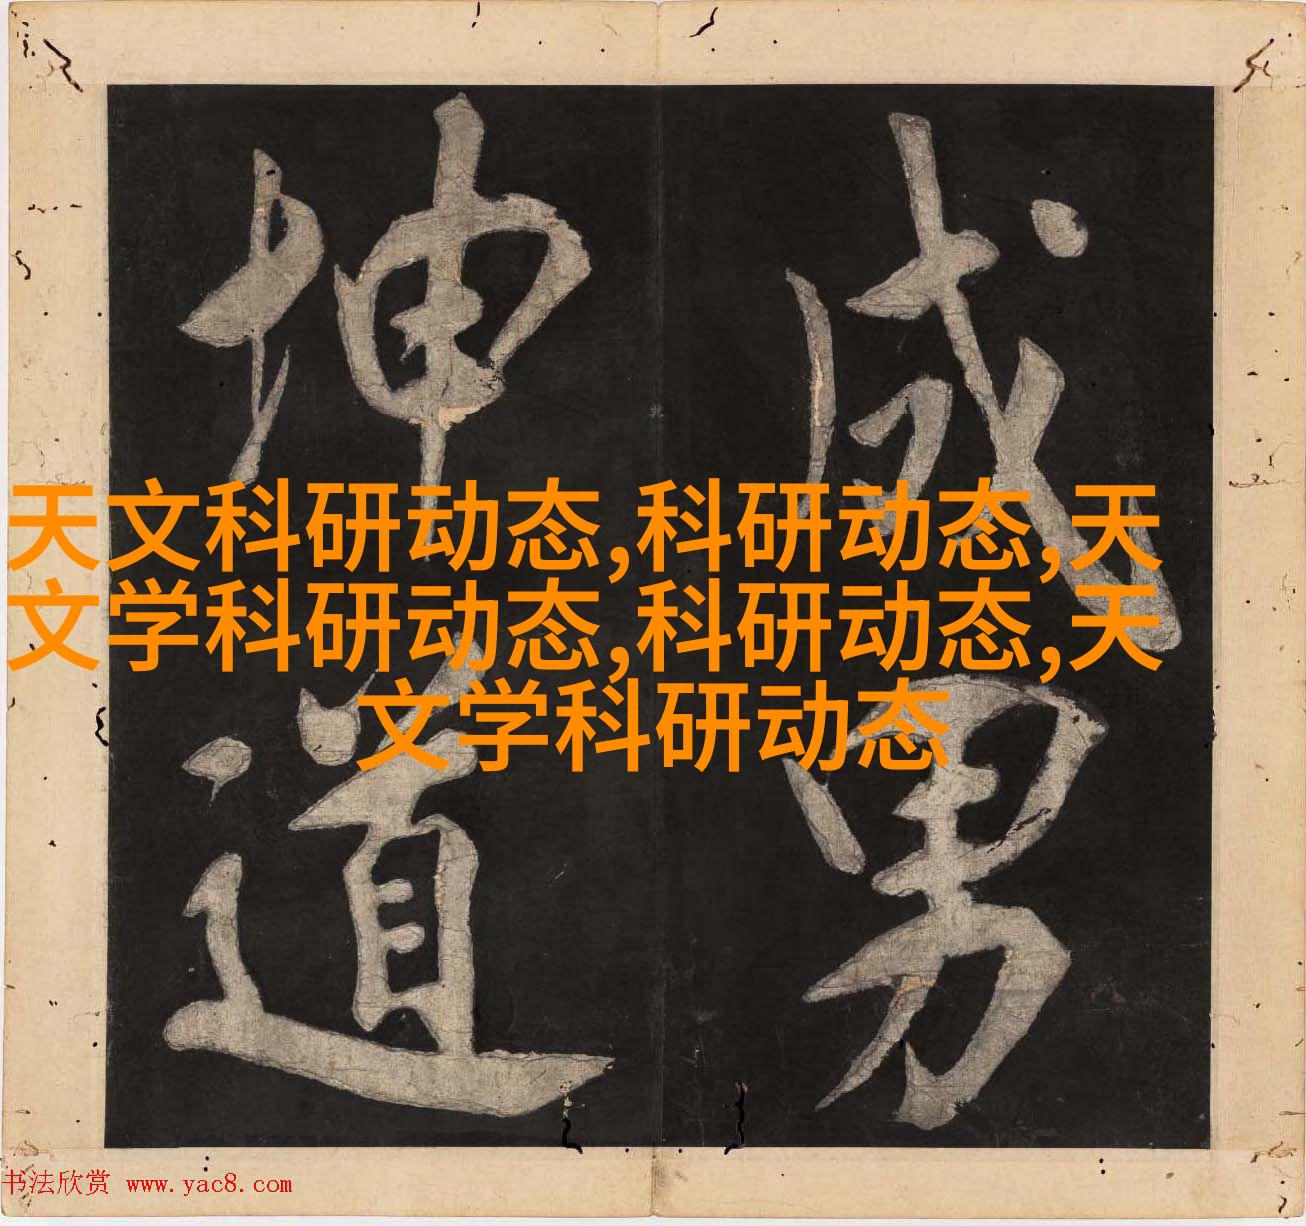 成男
坤道
天文科研动态,科研动态,天
文学科研动态,科研动态,天
文学科研动态
书法欣赏 www.yac8.com